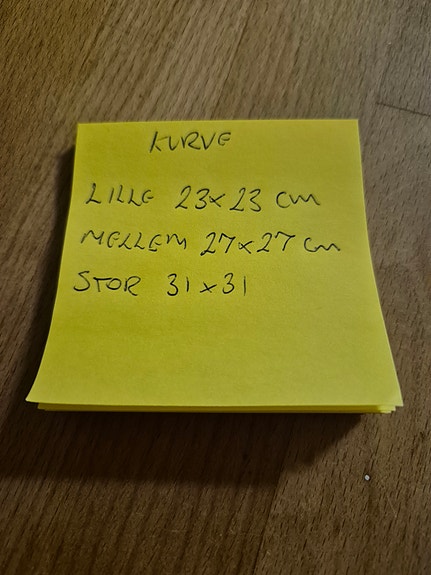 KURVE
LILLE 23x23 cm
MELLEM 27x27 cm
STOR 31x31